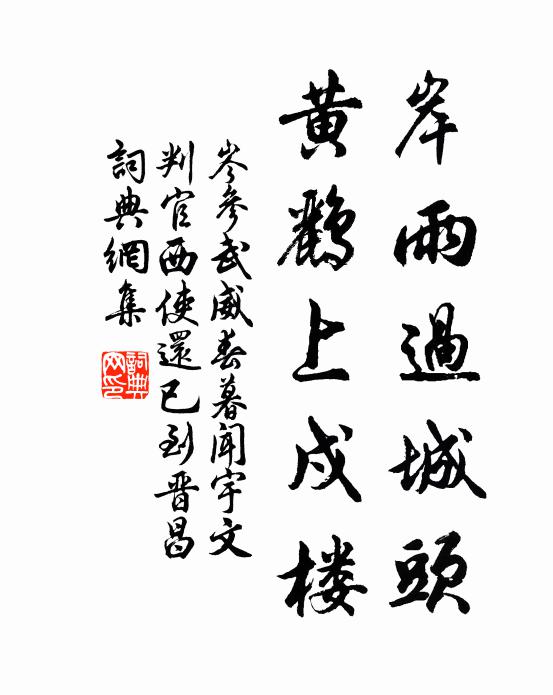 岸雨過城頭
黃鸝上戍楼
岑參武威春暮聞宇文
判官西使還已到晉昌
詞典網集
詞典网印